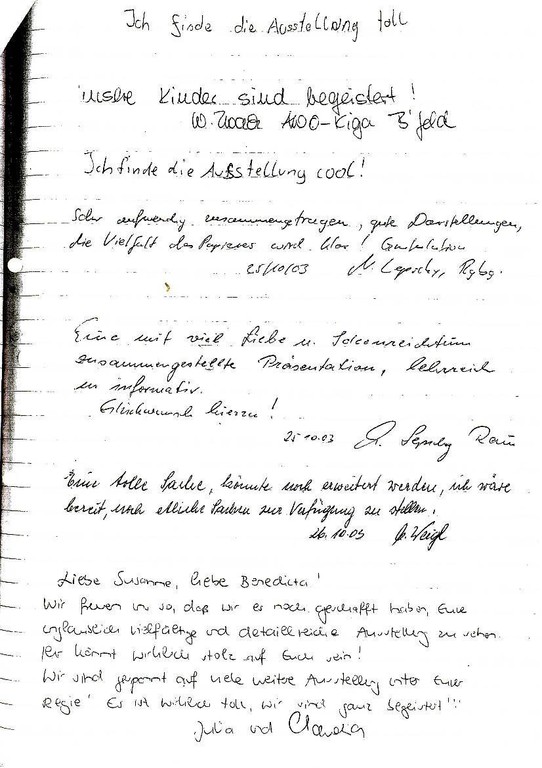 Ich finde die Ausstellung toll
unsere Kinder sind begeistert!
W. AWO-Kiga B'feld
Ich finde die Ausstellung cool!
Sehr aufwendig zusammengetragen, gute Darstellungen,
die Vielfalt des Papieres wird klar! Gratulation
25/10/03 Rgbg.
Eine mit viel Liebe u. Ideenreichtum
zusammengestellte Präsentation, lehrreich
u informativ.
Glückwunsch hierzu!
25.10.03
Eine tolle Sache, könnte noch erweitert werden, ich wäre
bereit, noch etliche Sachen zur Verfügung zu stellen.
26.10.03 Weigl
Liebe Susanne, liebe Benedicta!
Wir freuen uns so, daß wir es noch geschafft haben, Eure
unglaublich vielfältige und detailreiche Ausstellung zu sehen.
Ihr könnt wirklich stolz auf Euch sein!
Wir sind gespannt auf viele weitere Ausstellung unter Eurer
Regie! Es ist wirklich toll, wir sind ganz begeistert!!!
Julia und Claudia